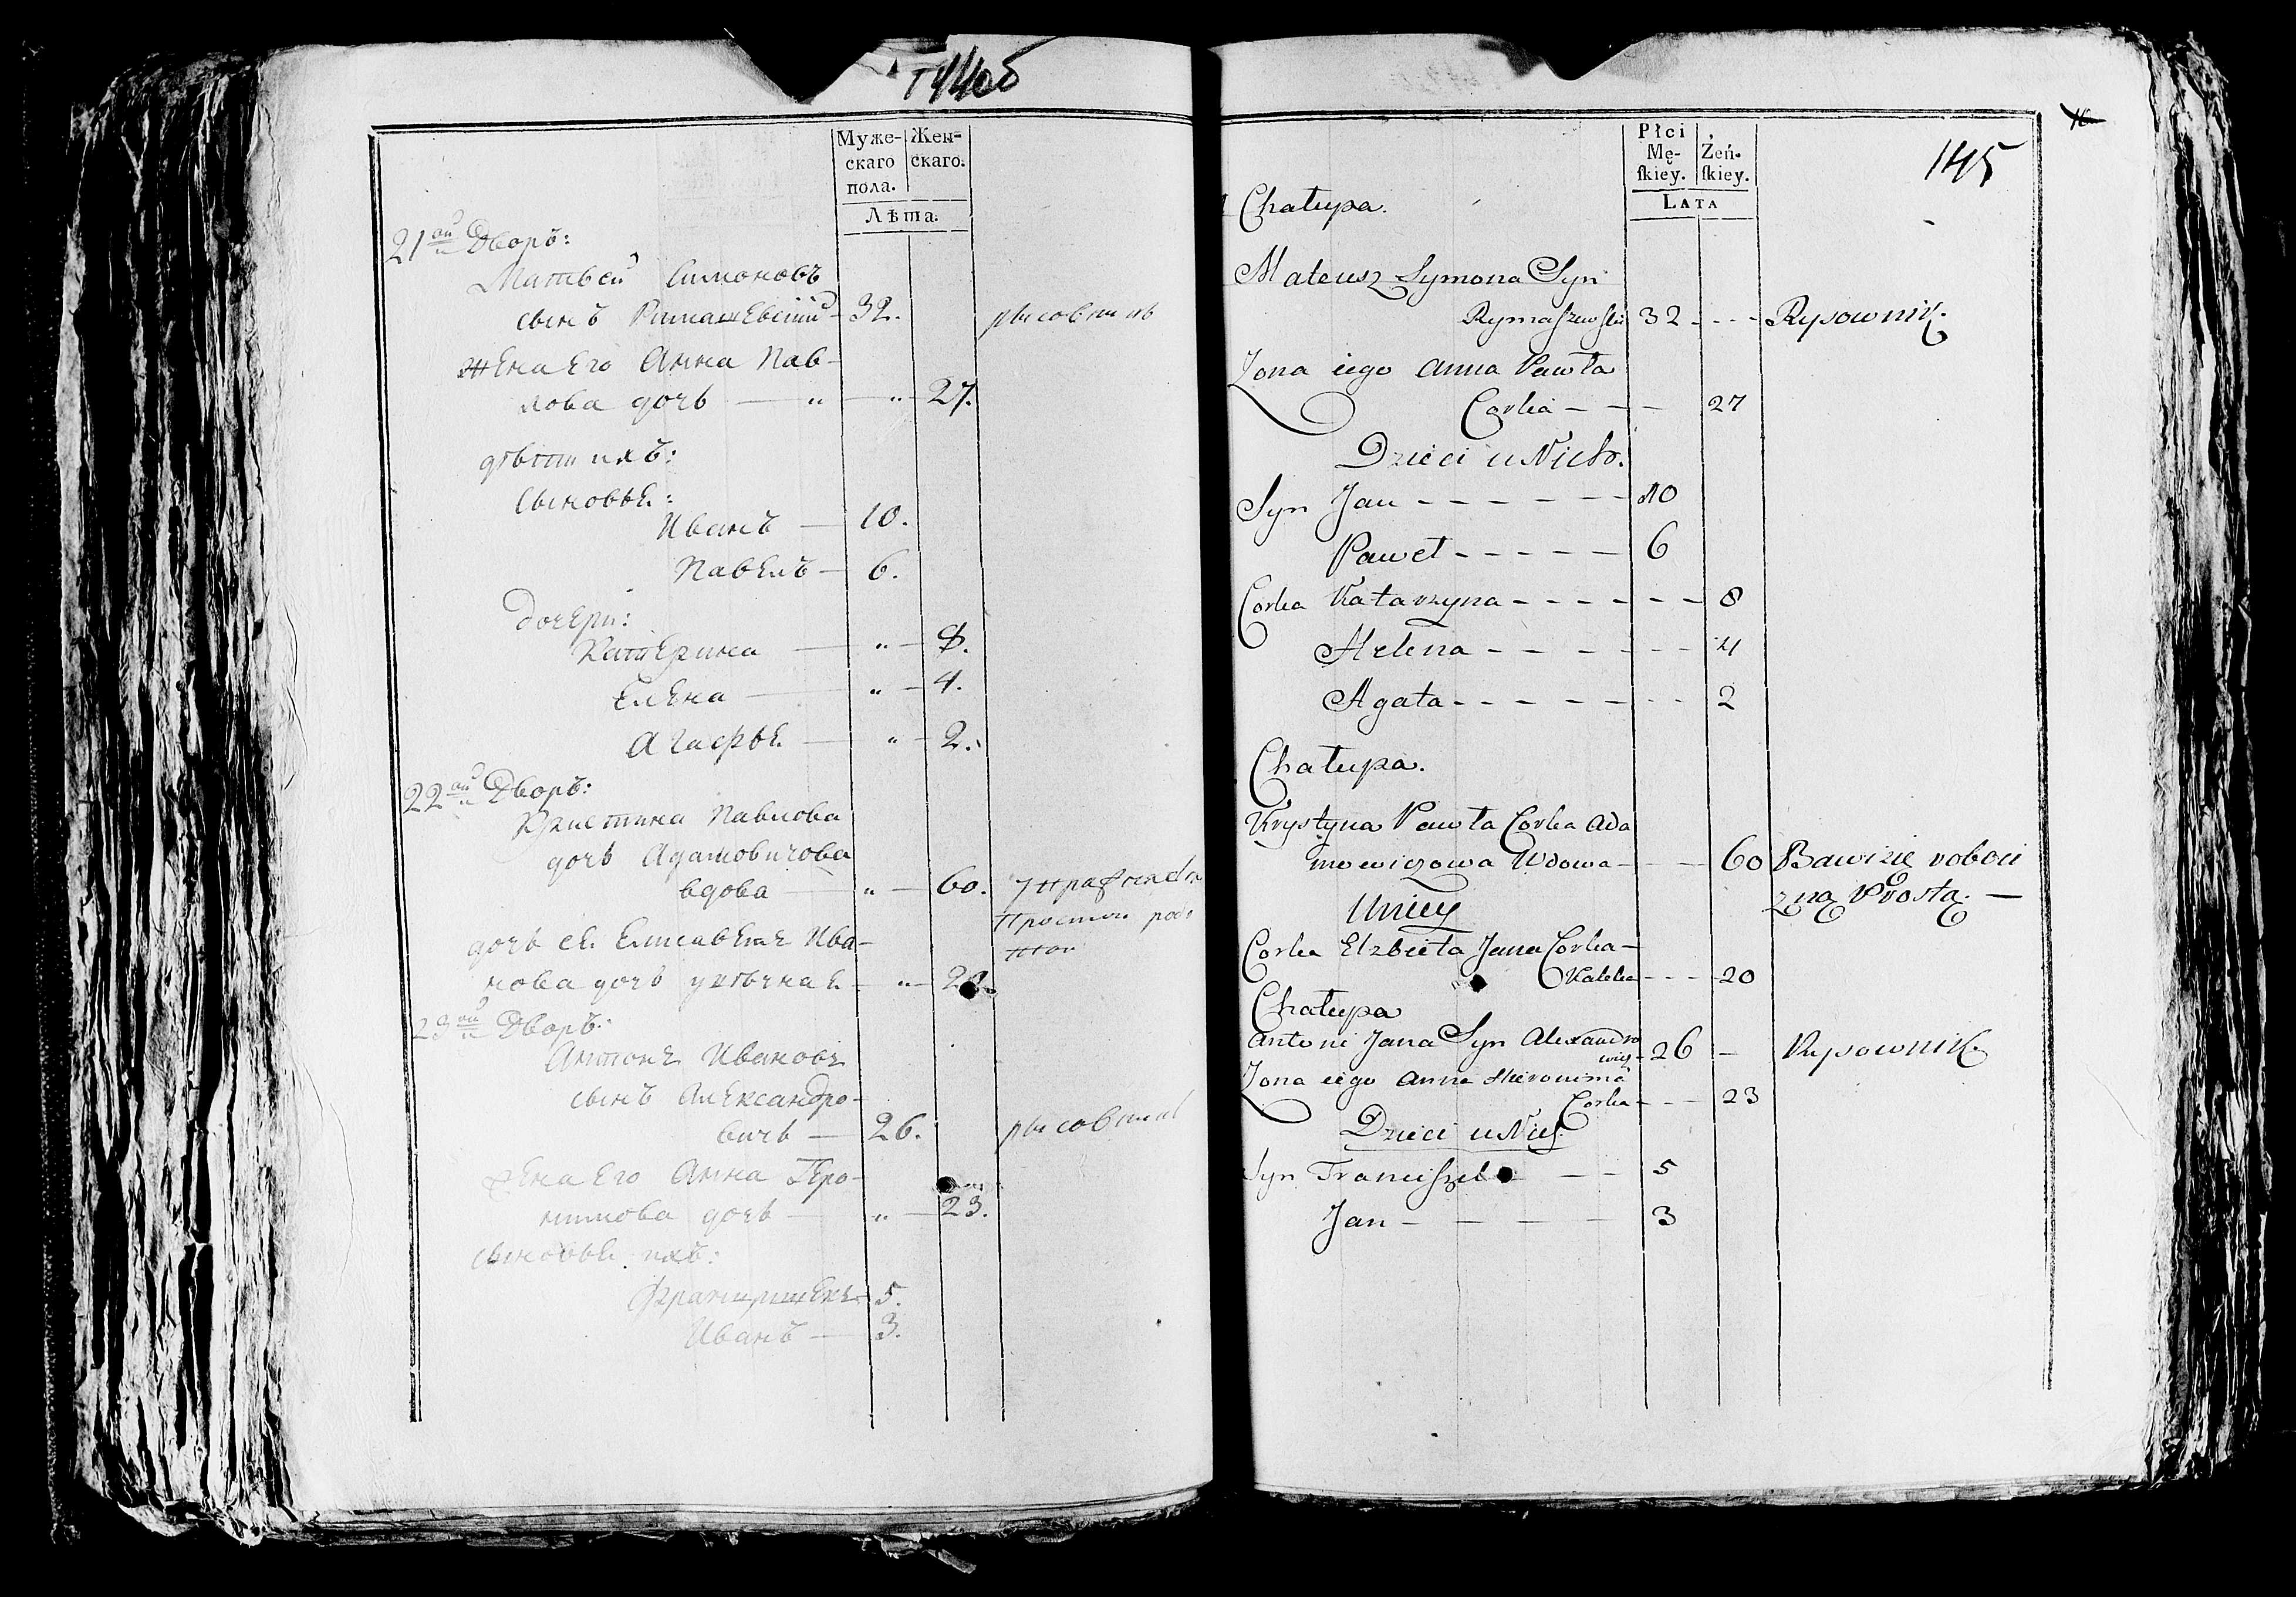 144об
Муже-
скаго
пола.
Жен-
скаго.
Лѣта.
21ый Дворъ:
Матвей Симоновъ
сынъ Римашевский 32. рисовникъ
жена его Анна Пав-
лова дочь — „ — „ — 27.
дѣти ихъ:
сыновье:
Иванъ — 10.
Павелъ — 6.
Дочери:
Катерина — „ — 8.
Елена — „ — 4.
Агафье — „ — 2.
22ой Дворъ:
Кристина Павлова
дочь Адамовичова
вдова — „ — 60.
Простой рабо
той
дочь ее Елисаветъ Ива-
нова дочь увѣчная — „ —
23ий Дворъ:
Антонъ Ивановъ
сынъ Александро-
вичь — 26. рисовникъ
жена его Анна Геро-
нимова дочь — „ — 23.
сыновье ихъ:
Францишекъ 5.
Иванъ — 3.
16
145
Płci
Mę-
ſkiey.
Żeń-
ſkiey.
LATA
Chałupa.
Mateusz Symona Syn
Rymaszewski 32 - - - Rysownik.
Zona iego Anna Pawła
Corka - - - 27
Dzieci u Nich.
Syn Jan - - - - - - 10
Paweł - - - - - 6
Corka Katarzyna - - - - - - 8
Helena - - - - - - 4
Agata - - - - - - - 2
Chałupa.
Krystyna Pawła Corka Ada
mowiczowa Wdowa - - - 60 Bawi się roboci
zną Prostą. —
U niey
Corka Elzbieta Jana Corka -
Kaleka - - - 20
Chałupa
Antoni Jana Syn Alexandro
wicz - 26 - Rysownik.
Zona iego Anna Hieronima
Corka - - - 23
Dzieci u Nich.
Syn Franciszek — — 5
Jan — — — — 3